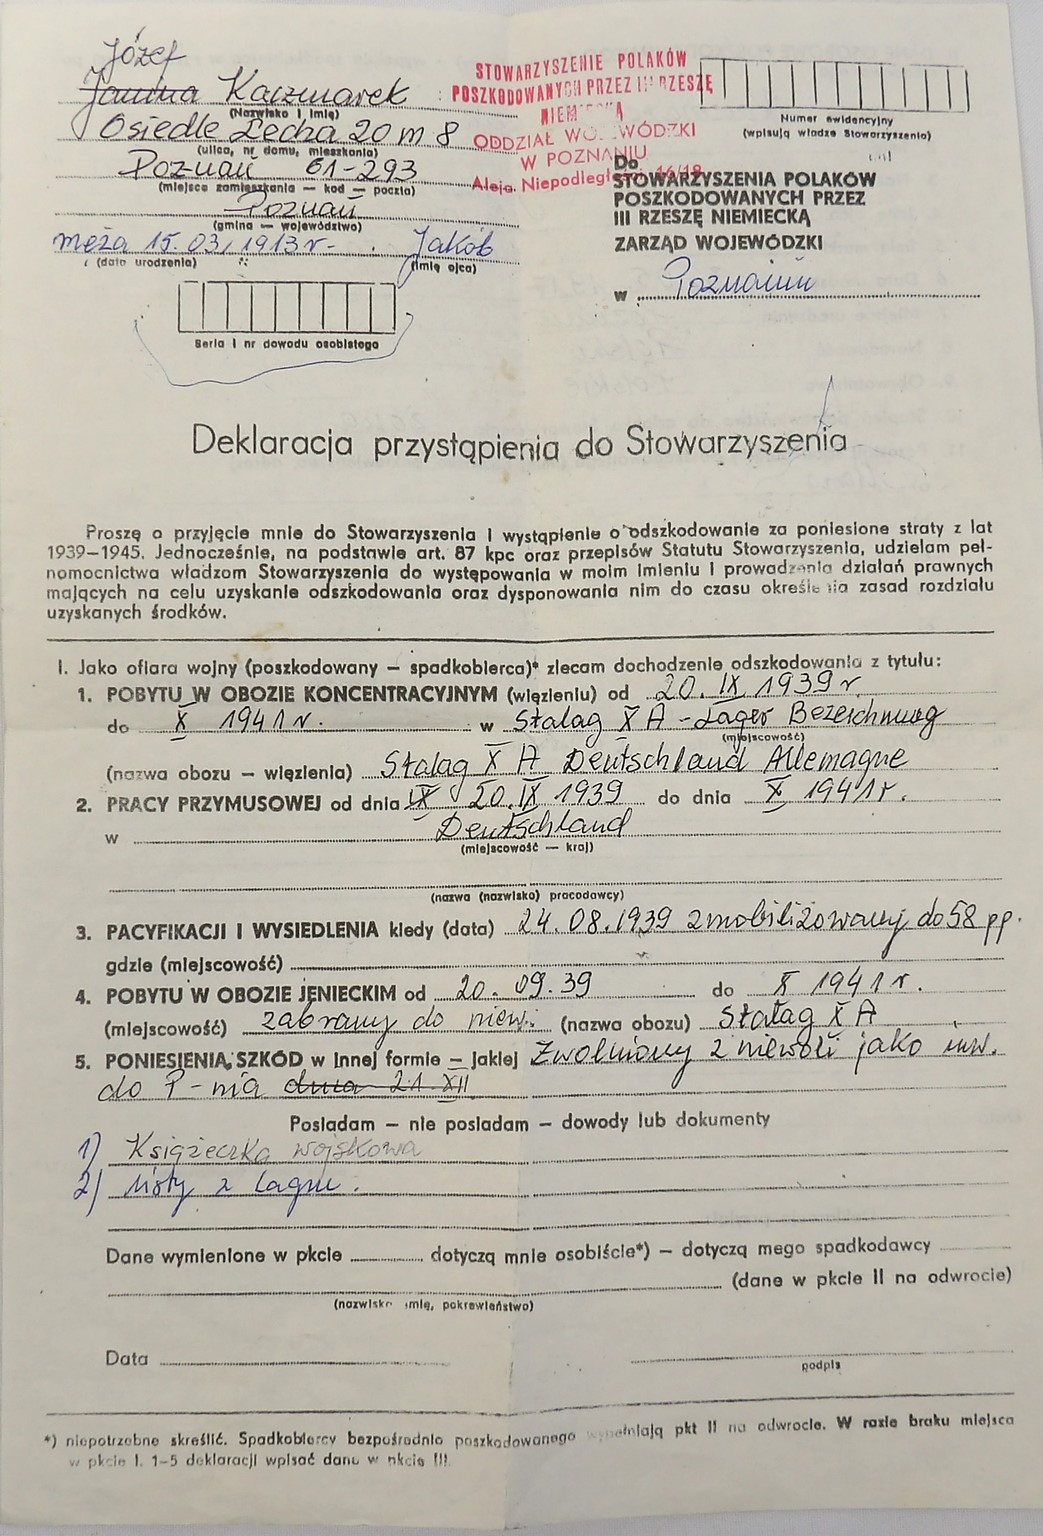 Józef
Janina Kaczmarek
(Nazwisko i imię)
Osiedle Lecha 20 m 8
(ulica, nr domu, mieszkania)
Poznań 61-293
(miejsce zamieszkania — kod — poczta)
Poznań
(gmina — województwo)
męża 15.03.1913 r. Jakób
(data urodzenia) (imię ojca)
Seria i nr dowodu osobistego
STOWARZYSZENIE POLAKÓW
POSZKODOWANYCH PRZEZ III RZESZĘ
NIEMIECKĄ
ODDZIAŁ WOJEWÓDZKI
W POZNANIU
Aleja Niepodległości 16/18
Numer ewidencyjny
(wpisują władze Stowarzyszenia)
Do
STOWARZYSZENIA POLAKÓW
POSZKODOWANYCH PRZEZ
III RZESZĘ NIEMIECKĄ
ZARZĄD WOJEWÓDZKI
w Poznaniu
Deklaracja przystąpienia do Stowarzyszenia
Proszę o przyjęcie mnie do Stowarzyszenia i wystąpienie o odszkodowanie za poniesione straty z lat
1939—1945. Jednocześnie, na podstawie art. 87 kpc oraz przepisów Statutu Stowarzyszenia, udzielam peł-
nomocnictwa władzom Stowarzyszenia do występowania w moim imieniu i prowadzenia działań prawnych
mających na celu uzyskanie odszkodowania oraz dysponowania nim do czasu określenia zasad rozdziału
uzyskanych środków.
I. Jako ofiara wojny (poszkodowany — spadkobierca)* zlecam dochodzenie odszkodowania z tytułu:
1. POBYTU W OBOZIE KONCENTRACYJNYM (więzieniu) od 20.IX 1939 r.
do X 1941 r. w Stalag X A - Lager Bezeichnung
(miejscowość)
(nazwa obozu — więzienia) Stalag X A Deutschland Allemagne
2. PRACY PRZYMUSOWEJ od dnia IX 20.IX 1939 do dnia X 1941 r.
w Deutschland
(miejscowość — kraj)
(nazwa (nazwisko) pracodawcy)
3. PACYFIKACJI I WYSIEDLENIA kiedy (data) 24.08.1939 zmobilizowany do 58 pp.
gdzie (miejscowość)
4. POBYTU W OBOZIE JENIECKIM od 20.09.39 do X 1941 r.
(miejscowość) zabrany do niew. (nazwa obozu) Stalag X A
5. PONIESIENIA SZKÓD w innej formie — jakiej Zwolniony z niewoli jako inw.
do P-nia dnia 21 XII
Posiadam — nie posiadam — dowody lub dokumenty
1) Książeczka wojskowa
2) listy z Lagru.
Dane wymienione w pkcie dotyczą mnie osobiście*) — dotyczą mego spadkodawcy
(dane w pkcie II na odwrocie)
(nazwisko imię, pokrewieństwo)
Data
podpis
*) niepotrzebne skreślić. Spadkobiercy bezpośrednio poszkodowanego wypełniają pkt II na odwrocie. W razie braku miejsca
w pkcie I. 1—5 deklaracji wpisać dane w pkcie III.